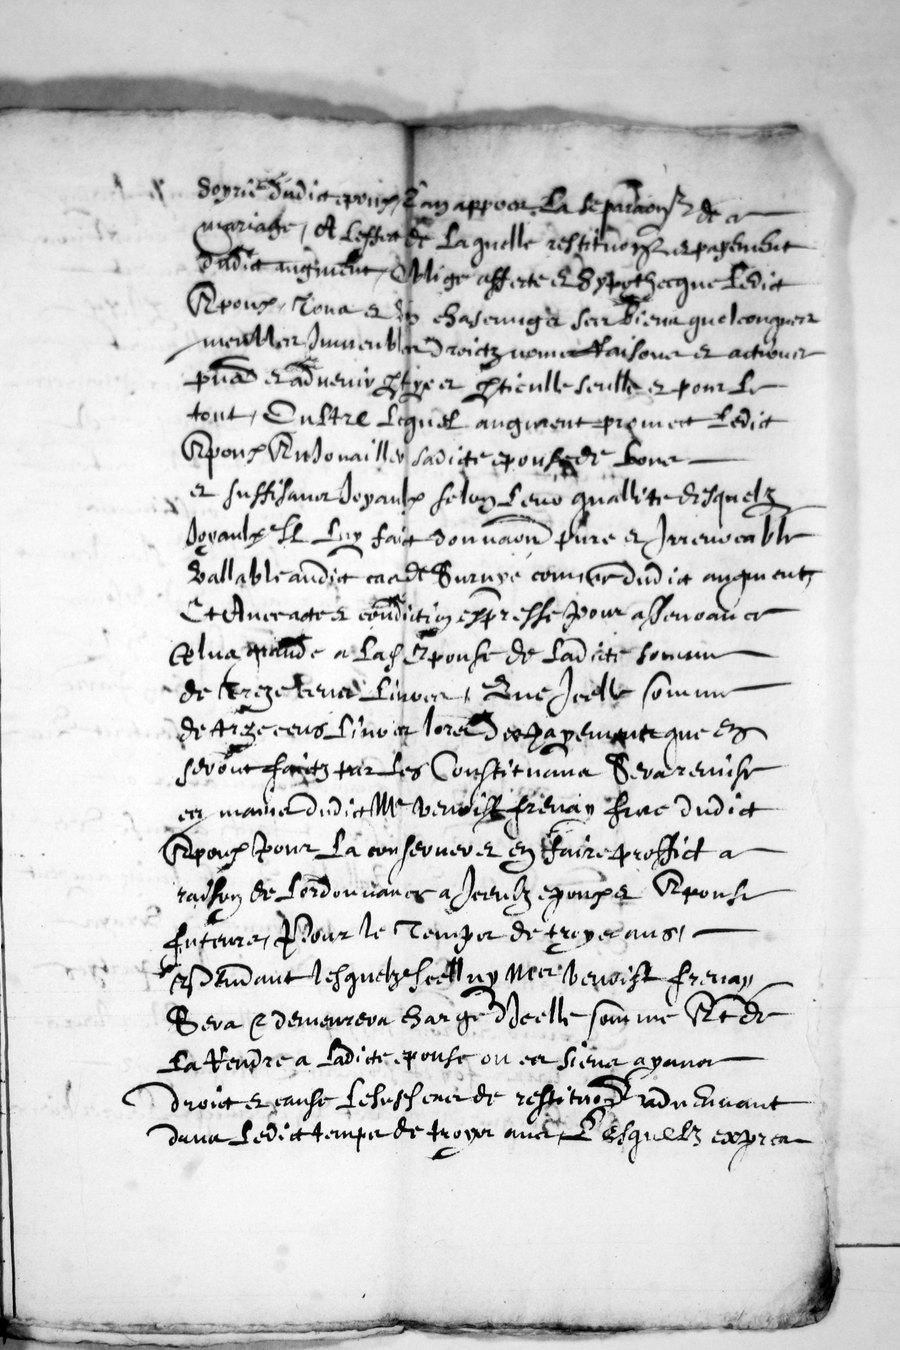 dudict epoux, la separaon de ce
mariage, A leffect de laquelle restituon et payement
dudict augment, Oblige affecte et hypothecque ledict
Epoux, tous et ung chascungs ses biens quelconques
meubles Immeubles droictz noms Raisons et actions
pnts et advenir seulle et pour le
tout, Oultre lequel augment promect ledict
Epoux Enjouailler sadicte epouse de bons
et suffisans Joyaulx selon leur quallite desquelz
Joyaulx Il luy faict donnaon pure et Irrevocable
vallable audict cas de Survye comme dudict augment,
Et Avec acte et condition expresse pour asseurance
plus grande a lad Epouse de ladicte somme
de treze cens livres, Que Icelle somme
de treze cens livres lors des payements que en
seront faictz par les Constituans Sera remise
es mains dudict Me benoist frenay frere dudict
Epoux pour la conserver et en faire proffict a
raison de lordonnance a Iceulx epoux et Epouse
futeurs, Pour le Temps de troys ans,
Pendant lesquelz Icelluy Mes benoist frenay
Sera & demeurera charge dIcelle somme Et de
la Rendre a ladicte epouse ou es siens ayans
droict et cause de restituon advenant
dans ledict temps de troys ans, Lesquelz expires